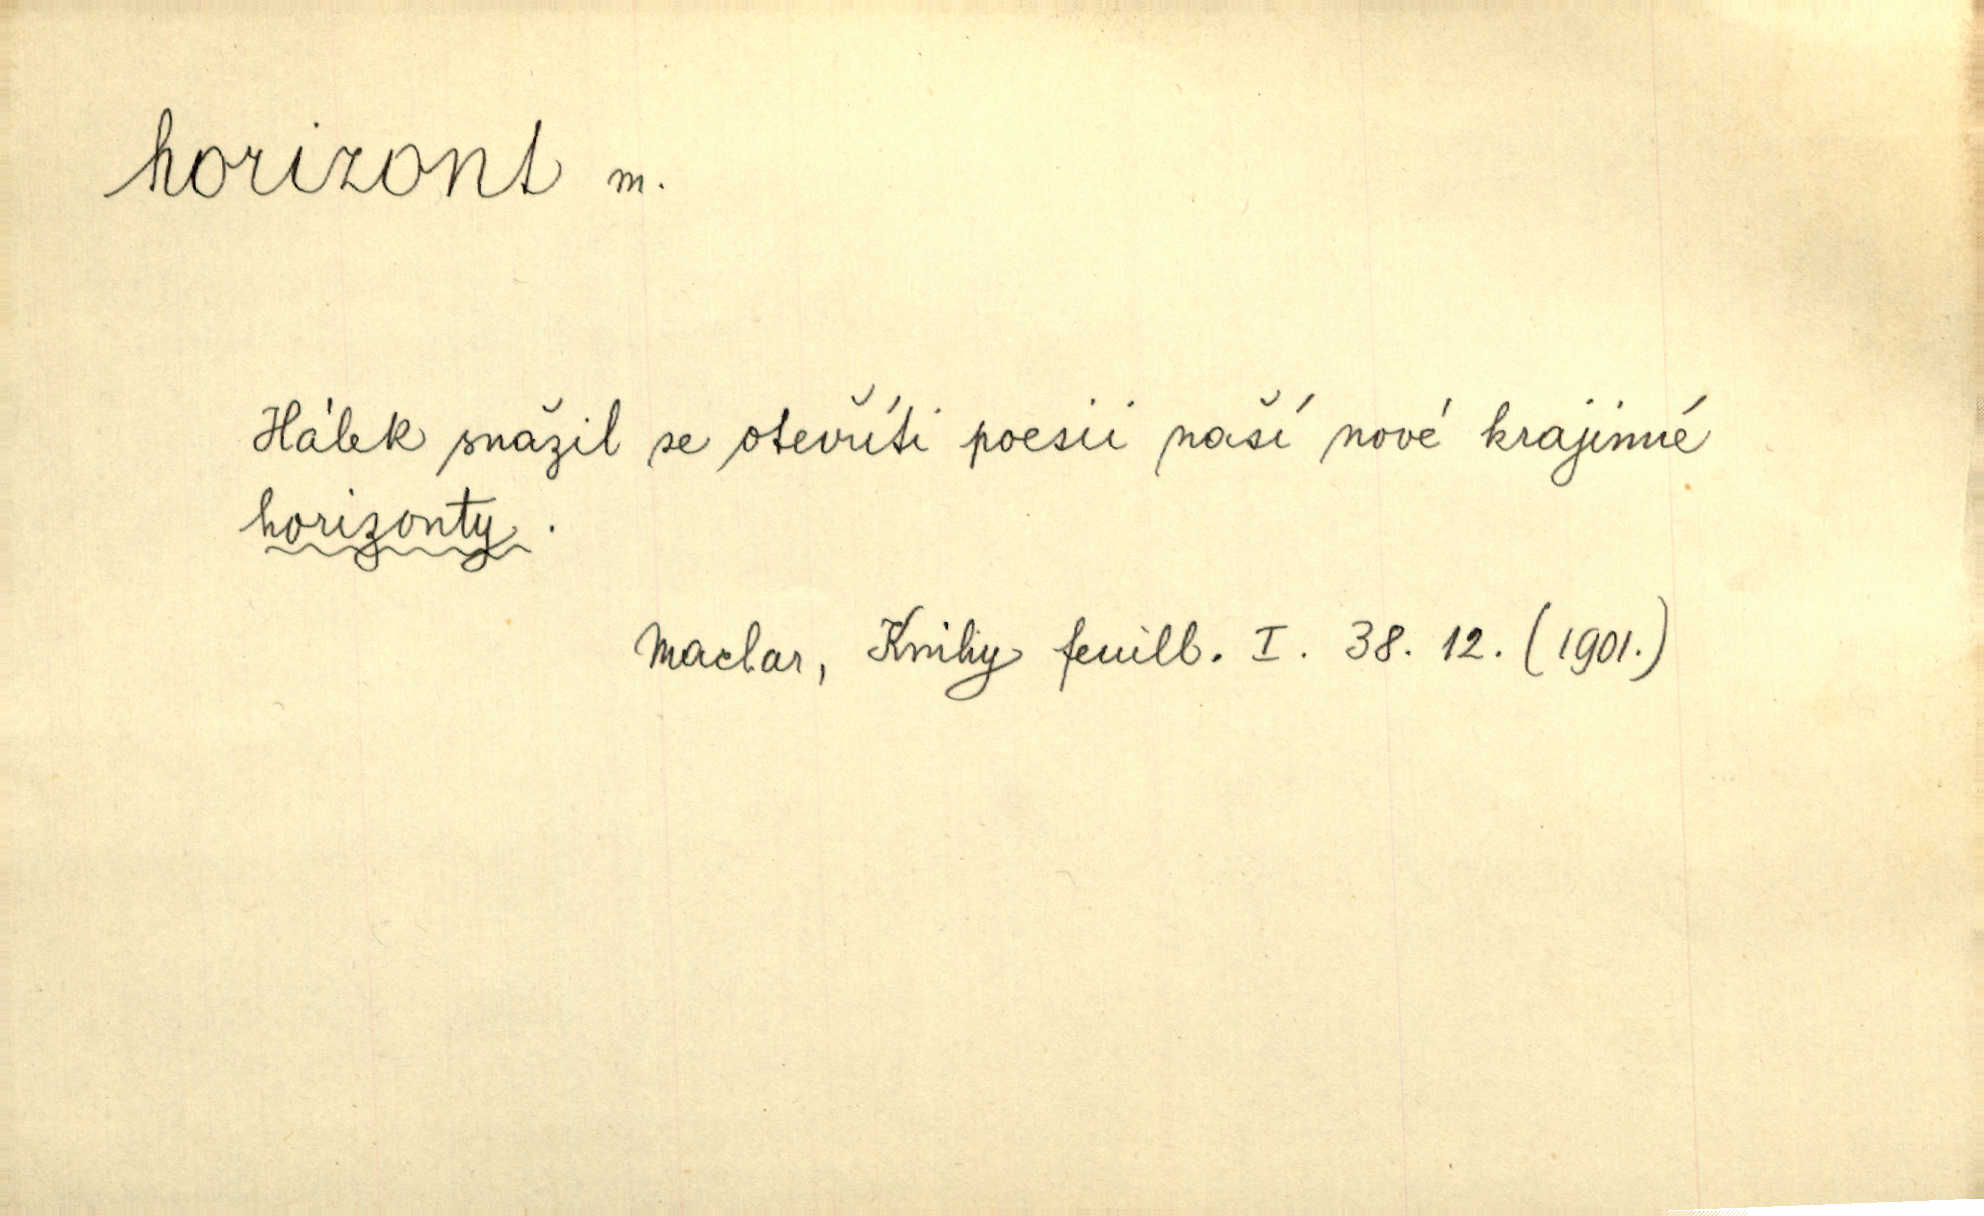 horizont m.
Hálek snažil se otevříti poesii naší nové krajinné
horizonty.
Machar, Knihy feuill. I. 38. 12. (1901.)